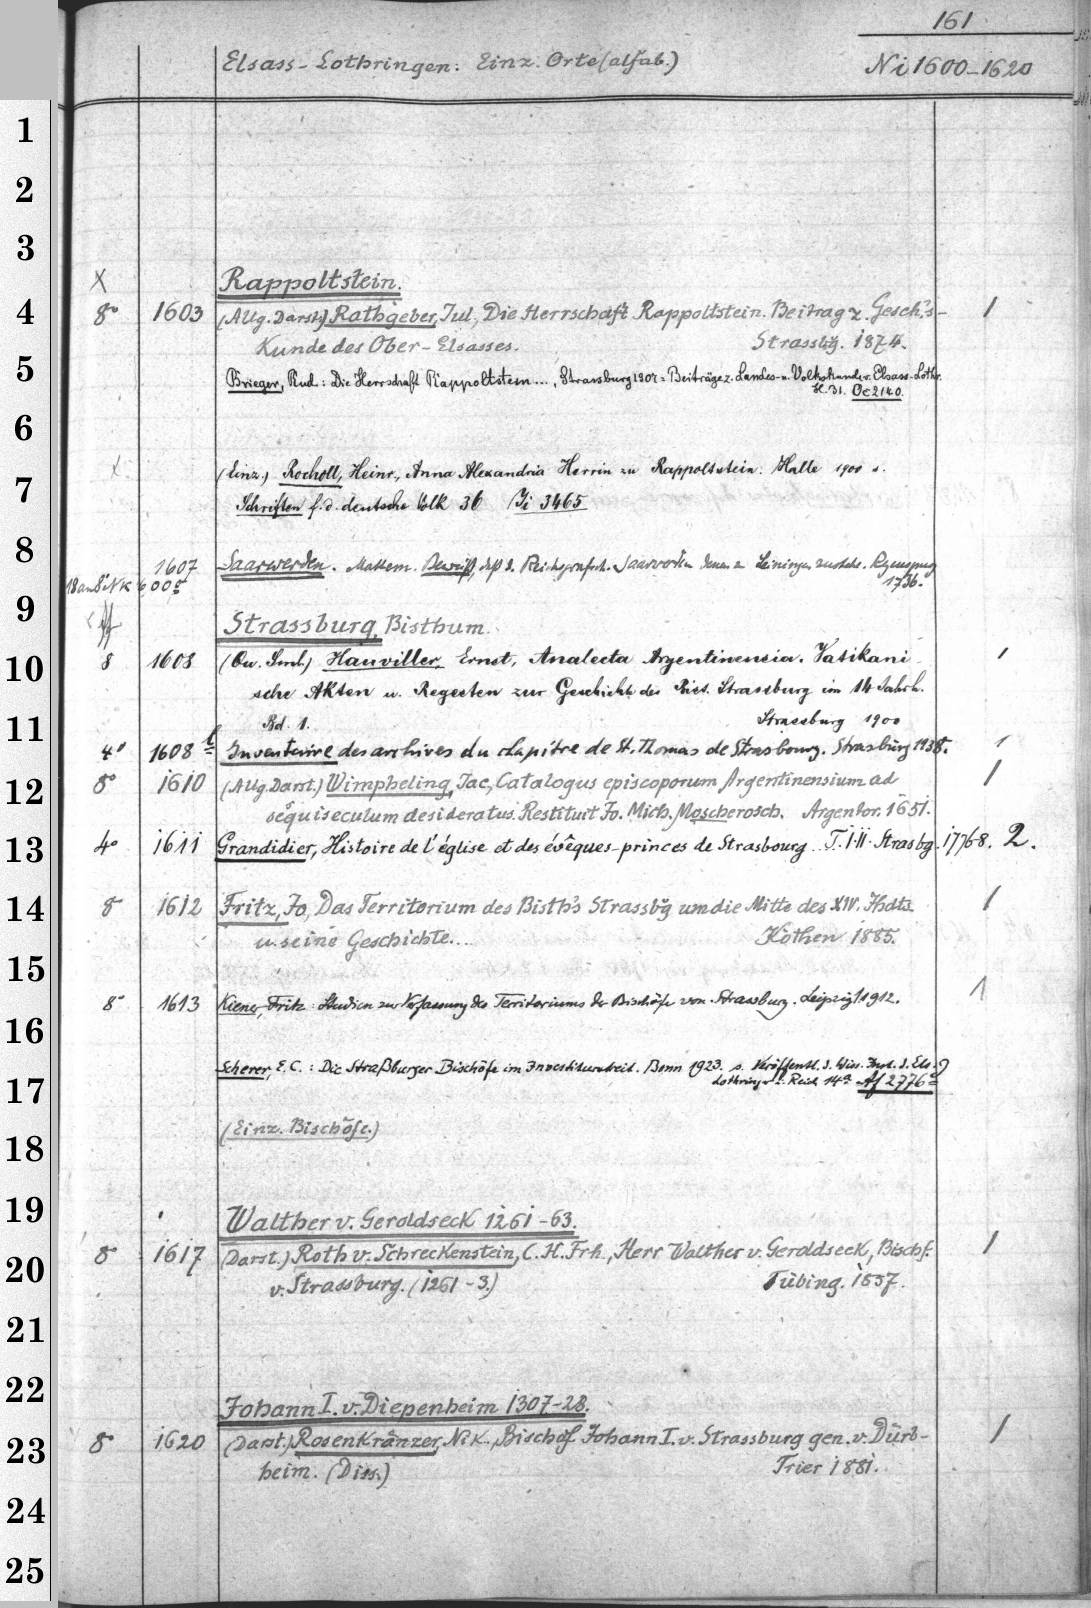 161
Elsass-Lothringen: Einz. Orte (alfab.) Ni 1600-1620
1
2
3
X Rappoltstein.
4 8° 1603 (Allg. Darst.) Rathgeber, Jul., Die Herrschaft Rappoltstein. Beitrag z. Gesch's- 1
Kunde des Ober-Elsasses. Strassbg. 1874.
5 Brieger, Rud.: Die Herrschaft Rappoltstein..., Strassburg 1907 = Beiträge z. Landes- u. Volkskunde v. Elsass-Lothr.
H. 31. Oc 2140.
6
X (Einz.) Rocholl, Heinr., Anna Alexandria Herrin zu Rappoltstein. Halle 1900 s.
7 Schriften f. d. deutsche Volk 36 Ji 3465
8
1607 Saarwerden. Beweiß, daß d. Reichsgrafsch. Saarwerden
1736.
9
Strassburg, Bisthum.
10 8 1608 (Qu. Smlg.) Hauviller, Ernst, Analecta Argentinensia. Vatikani- 1
sche Akten u. Regesten zur Geschichte des Bist. Strassburg im 14 Jahrh.
11 Bd. 1. Strassburg 1900
4° 1608 b Inventaire des archives du chapitre de St. Thomas de Strasbourg. Strasburg 1938. 1
12 8° 1610 (Allg. Darst.) Wimpheling, Jac., Catalogus episcoporum Argentinensium ad 1
sequiseculum desideratus. Restituit Jo. Mich. Moscherosch. Argentor. 1651.
13 4° 1611 Grandidier, Histoire de l'église et des évêques-princes de Strasbourg. T. I. II. Strasbg. 1776-8. 2.
14 8° 1612 Fritz, Jo., Das Territorium des Bisth's Strassb'g um die Mitte des XIV. Jhdts. 1
u. seine Geschichte... Köthen 1885.
15
8° 1613 Kiener, Fritz: Studien zur Verfassung des Territoriums der Bischöfe von Strassburg. Leipzig 1912. 1
16
Scherer, E. C.: Die Straßburger Bischöfe im Investiturstreit. Bonn 1923. s. Veröffentl. d. Wiss. Inst. d. Els.
17 Lothringer i. Reich 14a Af 2776
(Einz. Bischöfe.)
18
19 Walther v. Geroldseck 1261-63.
20 8° 1617 (Darst.) Roth v. Schreckenstein, C. H. Frh., Herr Walther v. Geroldseck, Bischf. 1
v. Strassburg. (1261-3.) Tübing. 1857.
21
22
Johann I. v. Diepenheim 1307-28.
23 8° 1620 (Darst.) Rosenkränzer, Nik., Bischof Johann I. v. Strassburg gen. v. Dürb- 1
heim. (Diss.) Trier 1881.
24
25